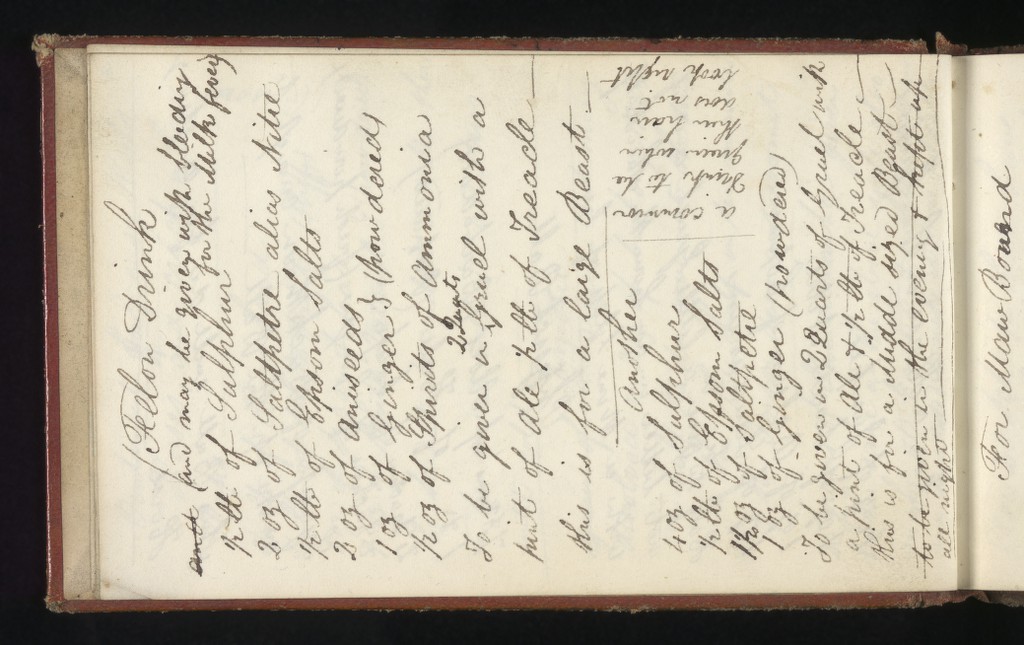 Felon Drink
(and may be given with bleeding
for the Milk fever)
½ lb of Sulphur
2 oz of Saltpetre alias Nitre
½ lb of Epsom Salts
2 oz of Aniseeds }
1 oz of Ginger } (powdered)
½ oz of Spirits of Ammonia
To be given in 2 Quarts Gruel with a
pint of ale ½ lb of Treacle
this is for a large Beast
Another
a common
Drink to be
given when
their hair
does not
look right
4 oz of Sulphur
½ lb of Epsom Salts
1½ oz of Saltpetre
1 oz of Ginger (powdered)
To be given in 2 Quarts of Gruel with
a pint of ale & ½ lb of Treacle
this is for a Middle sized Beast
to be given in the evening & kept up
all night
For Maw Bound